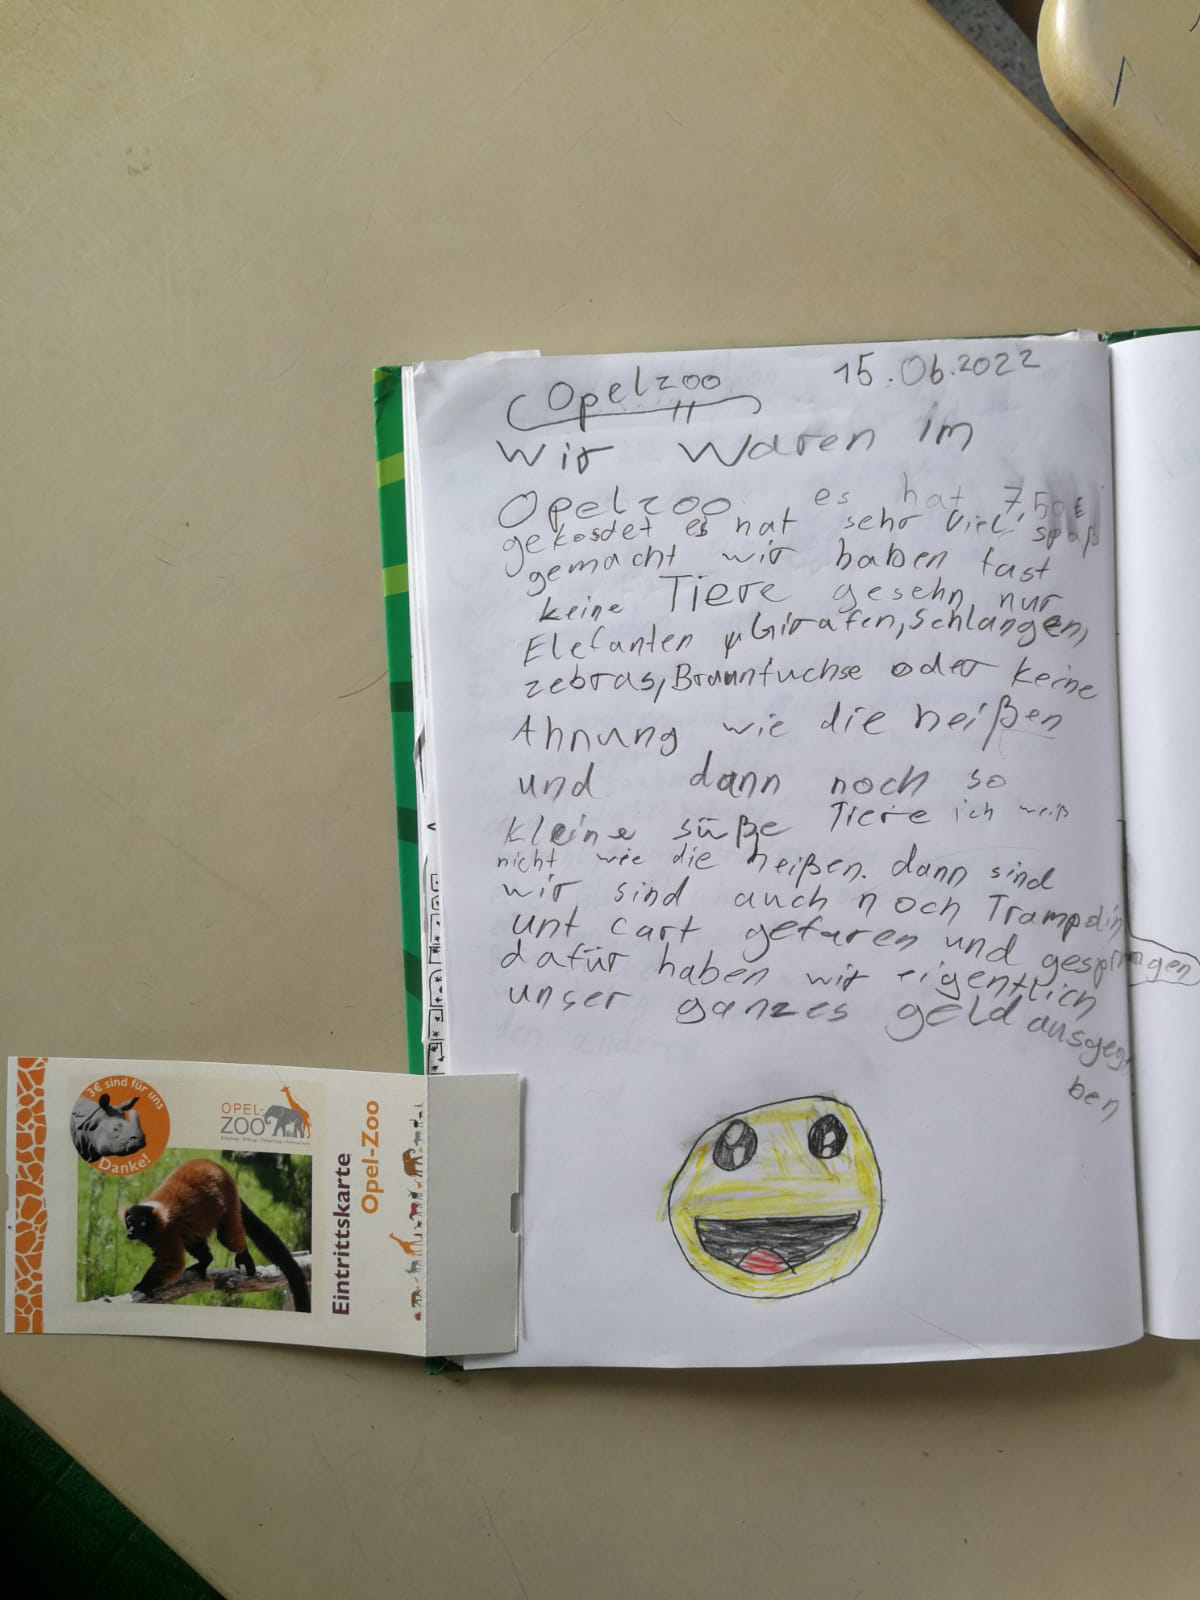 Opelzoo 15.06.2022
Wir waren im
Opelzoo es hat 7,50€
gekosdet es hat sehr viel spaß
gemacht wir haben fast
keine Tiere gesehn nur
Elefanten Girafen, Schlangen,
zebras, Braunfuchse oder keine
Ahnung wie die heißen
und dann noch so
kleine süße Tiere ich weiß
nicht wie die heißen. dann sind
wir sind auch noch Trampolin
unt cart gefaren und gesprungen
dafür haben wir eigentlich
unser ganzes geld ausgege
ben
3€ sind für uns
Danke!
OPEL-
ZOO
Eintrittskarte
Opel-Zoo